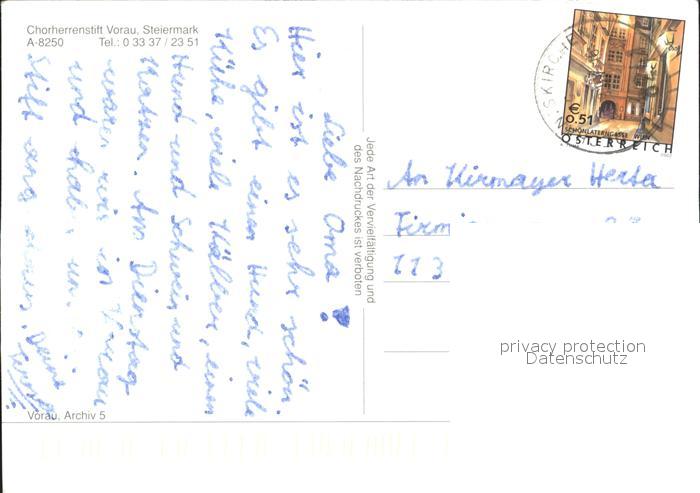 Chorherrenstift Vorau, Steiermark
A-8250 Tel.: 0 33 37 / 23 51
Liebe Oma!
Hier ist es sehr schön.
Es gibt einen Hund, viele
Kühe, viele Kälber, einen
Hund und Schwein und
Katzen. Am Dienstag
waren wir in Vorau
und hab
Stift ang
Deine
Vorau, Archiv 5
Jede Art der Vervielfältigung und
des Nachdruckes ist verboten
SKIRCHE
€
0.51
SCHÖNLATERNGASSE WIEN
ÖSTERREICH
An Kirmayer Herta
Firm
113
privacy protection
Datenschutz